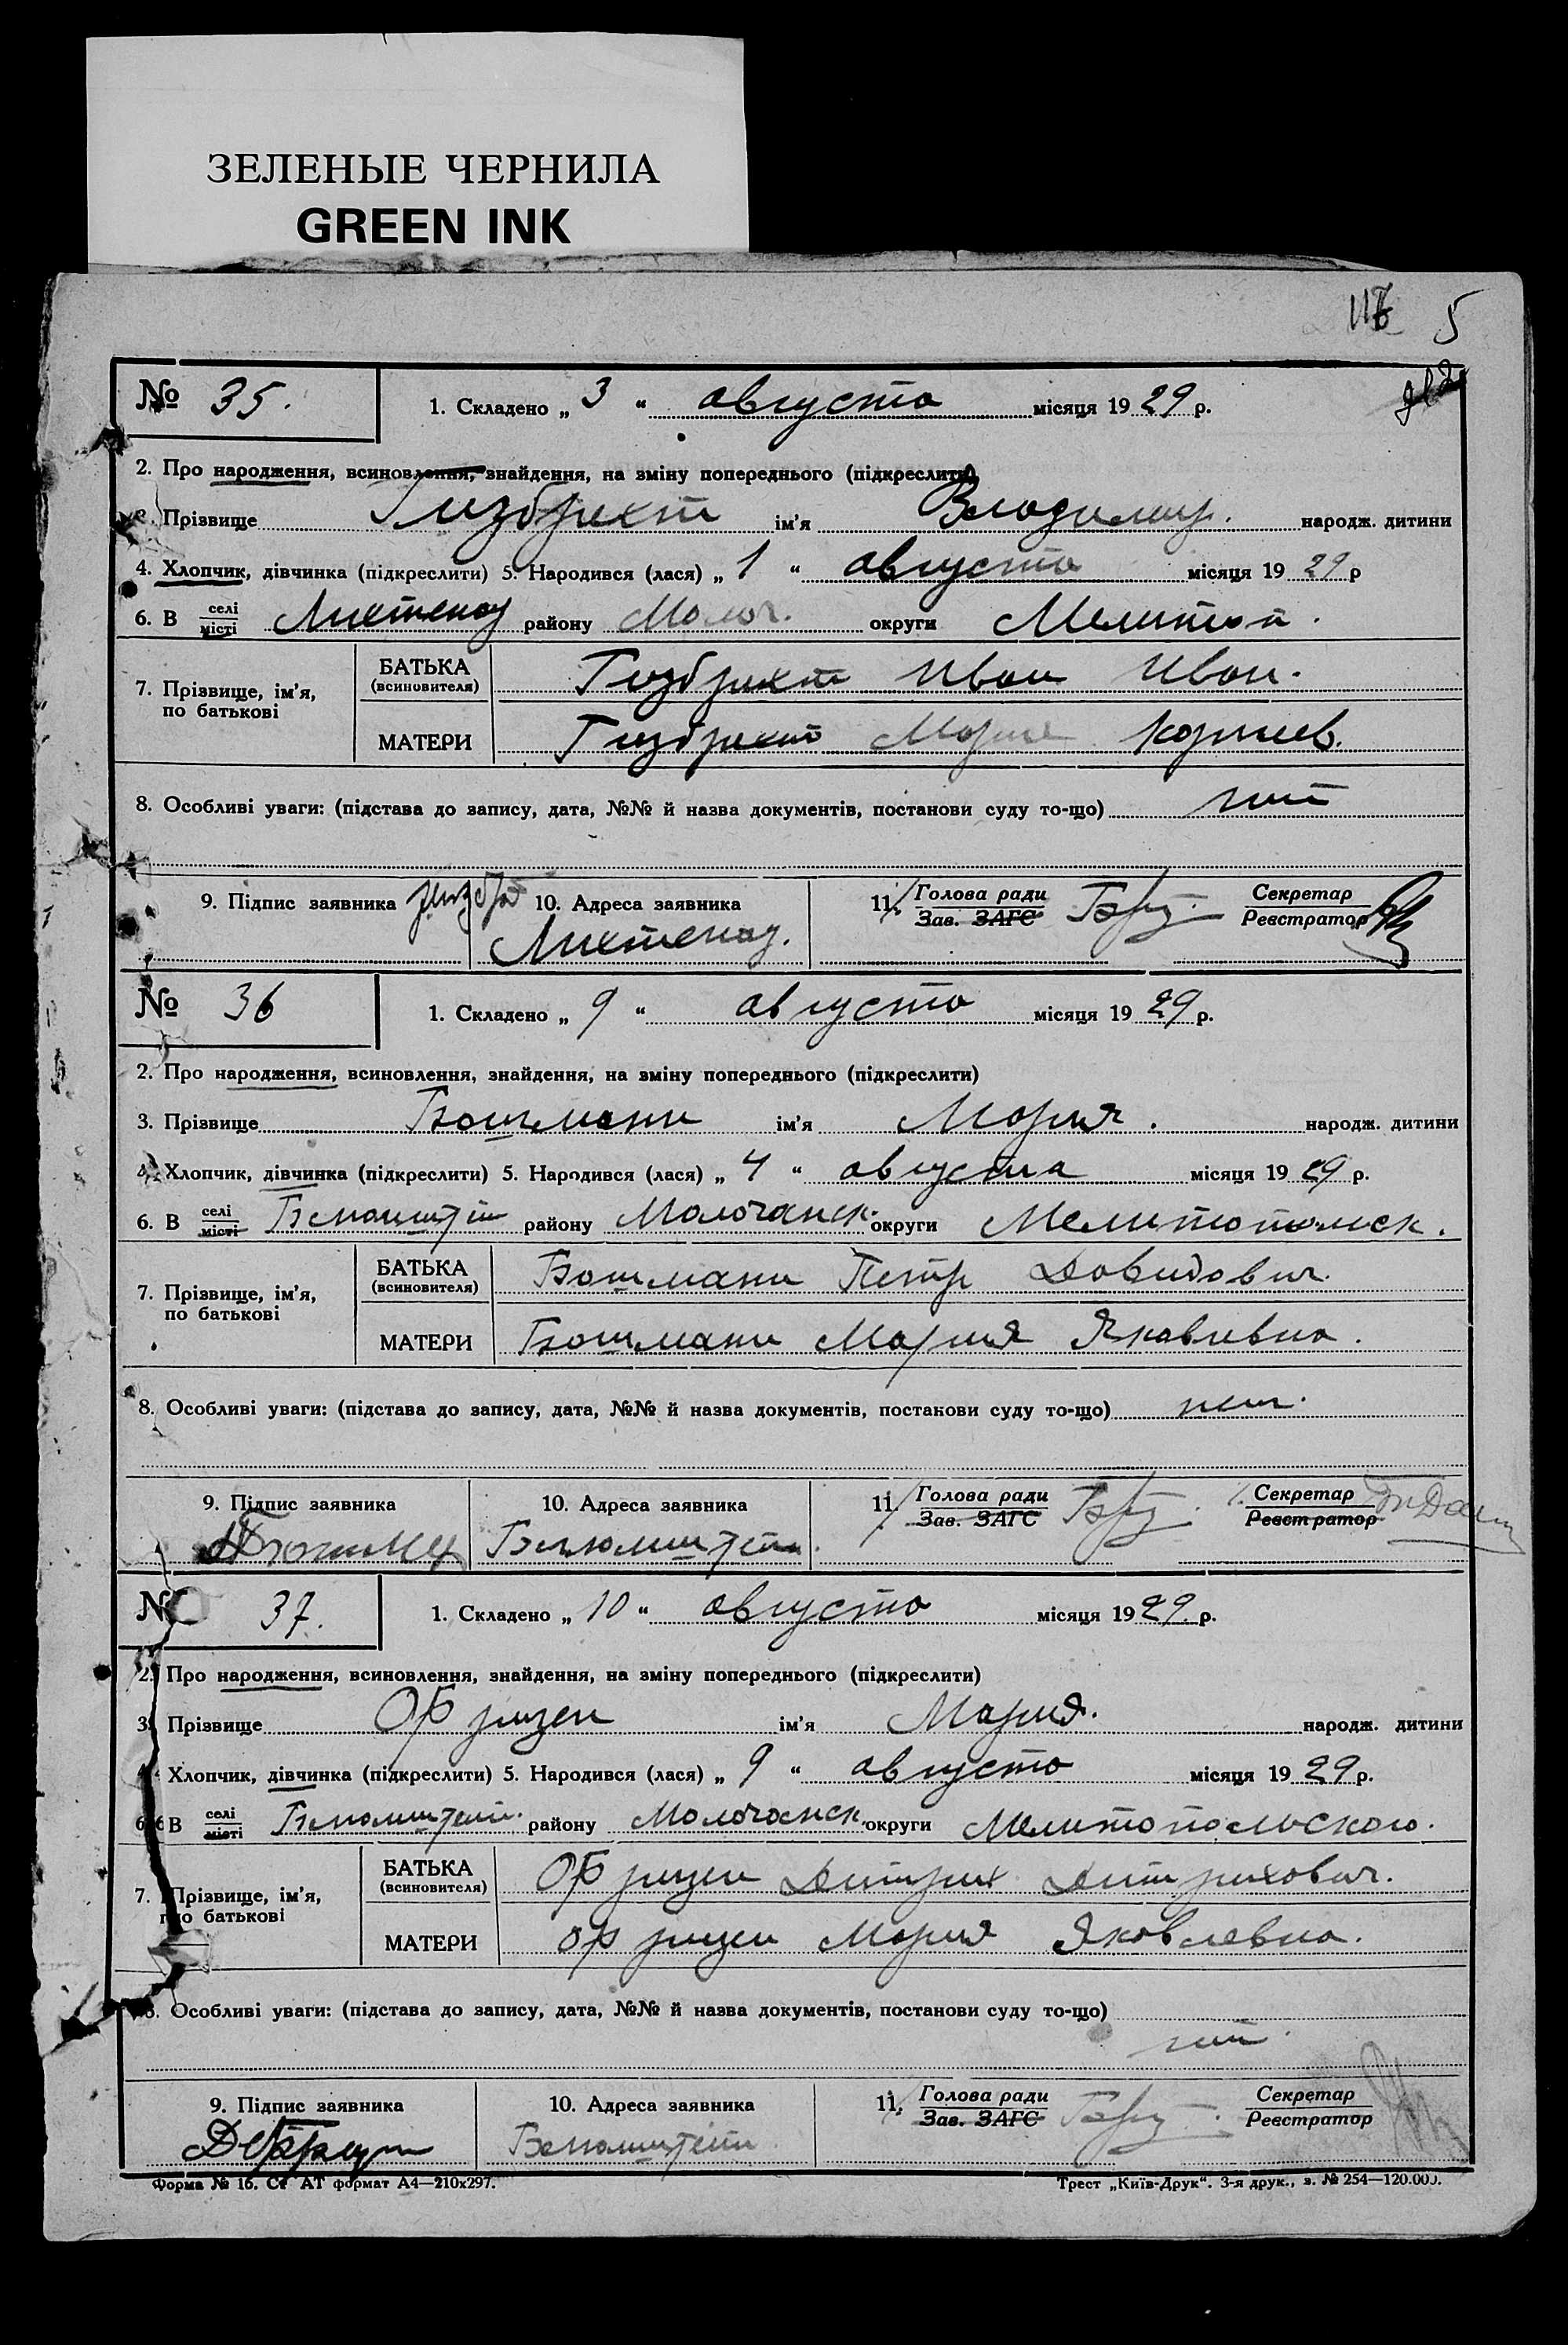 ЗЕЛЕНЫЕ ЧЕРНИЛА
GREEN INK
5
№ 35. 1. Складено „ 3 “ августа місяця 1929 р.
2. Про народження, всиновлення, знайдення, на зміну попереднього (підкреслити)
Прізвище Гизбрехт ім’я Владимир. народж. дитини
4. Хлопчик, дівчинка (підкреслити) 5. Народився (лася) „ 1 “ августа місяця 1929 р
6. В селі/місті Лихтенау району Молоч. округи Мелитоп.
7. Прізвище, ім’я, по батькові
БАТЬКА (всиновителя) Гизбрехт Иван Иван.
МАТЕРИ Гизбрехт Мария Корнеев.
8. Особливі уваги: (підстава до запису, дата, №№ й назва документів, постанови суду то-що) нет
9. Підпис заявника 10. Адреса заявника 11. Голова ради / Зав. ЗАГС Секретар / Реєстратор
Лихтенау.
№ 36 1. Складено „ 9 “ августа місяця 1929 р.
2. Про народження, всиновлення, знайдення, на зміну попереднього (підкреслити)
3. Прізвище Бошманн ім’я Мария. народж. дитини
4. Хлопчик, дівчинка (підкреслити) 5. Народився (лася) „ 4 “ августа місяця 1929 р.
6. В селі/місті району Молочанск. округи Мелитопольск.
7. Прізвище, ім’я, по батькові
БАТЬКА (всиновителя) Бошманн Петр Давидович.
МАТЕРИ Бошманн Мария Яковлевна.
8. Особливі уваги: (підстава до запису, дата, №№ й назва документів, постанови суду то-що) нет.
9. Підпис заявника 10. Адреса заявника 11. Голова ради / Зав. ЗАГС Секретар / Реєстратор
№ 37. 1. Складено „ 10 “ августа місяця 1929. р.
2. Про народження, всиновлення, знайдення, на зміну попереднього (підкреслити)
3. Прізвище Фризен ім’я Мария. народж. дитини
4. Хлопчик, дівчинка (підкреслити) 5. Народився (лася) „ 9 “ августа місяця 1929 р.
6. В селі/місті району Молочанск. округи Мелитопольского.
7. Прізвище, ім’я, по батькові
БАТЬКА (всиновителя) Фризен Дитрих Дитрихович.
МАТЕРИ Фризен Мария Яковлевна.
8. Особливі уваги: (підстава до запису, дата, №№ й назва документів, постанови суду то-що)
нет.
9. Підпис заявника 10. Адреса заявника 11. Голова ради / Зав. ЗАГС Секретар / Реєстратор
Форма № 16. Ст АТ формат А4—210x297. Трест „Київ-Друк“. 3-я друк., з. № 254—120.000.